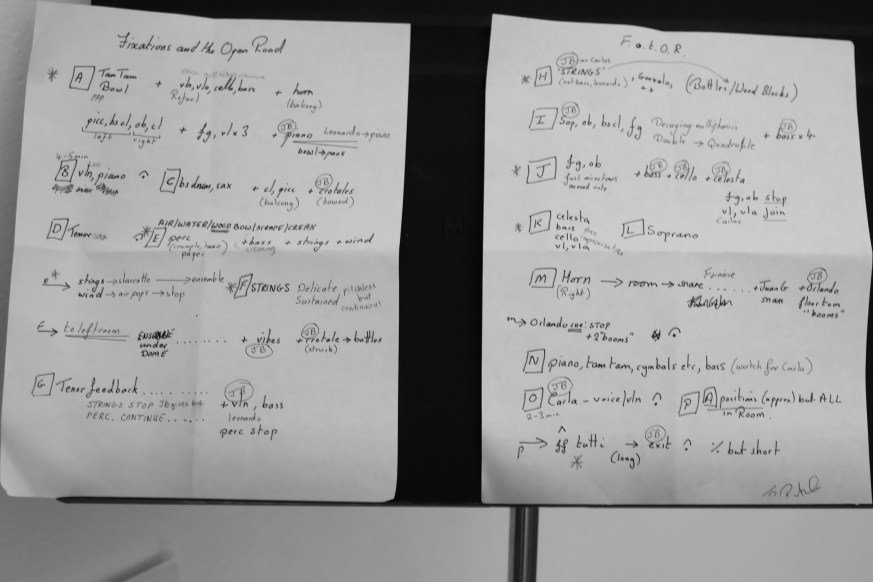 Fixations and the Open Road
* A Tam Tam Bowl ppp + vln, vla, cello, bass + horn (balcony)
picc, bscl, ob, cl + fg, vl x 3 + JB piano Leonardo → piano
left right bowl → pans
4-5 min
B vln, piano C bs drum, sax + cl, picc (balcony) + JB crotales (bowed)
AIR/WATER/WOOD BOW/SCRAPE/CREAK
D Tenor sax * E perc paper) + bass + strings + wind
E * → stings → staccatto → ensemble
wind → air pops → stop
* F STRINGS Delicate pitchless
Sustained but continuous
E → to left room ENSEMBLE under DOME ........ + vibes JB + JB crotale (struck) → bottles
G Tenor feedback .........
STRINGS STOP JB gives
PERC. CONTINUE ......
JB + vln, bass
leonardo
perc stop
F. o t O. R.
* H JB or Carlos "STRINGS" , Gonzalo, ++ (Bottles/Wood Blocks)
I JB Sop, ob, bscl, fg Decaying multiphonics
Double → Quadruple + JB bass x 4
* J fg, ob + JB bass + JB cello + JB celesta
fg, ob stop
vl, vla join
Carlos
* K celesta
bass
cello
vl, vla
L Soprano
M Horn (Right) → room → snare Furniture ...... + Juan G snare + JB Orlando floor tom "booms"
M → Orlando cue: STOP
+ 2 "booms"
N piano, tam tam, cymbals etc, bass (watch for Carla)
O JB Carla - voice/vln
2-3 min
P A positions (approx) but ALL in Room.
P → ff tutti * → (long) JB exit % but short